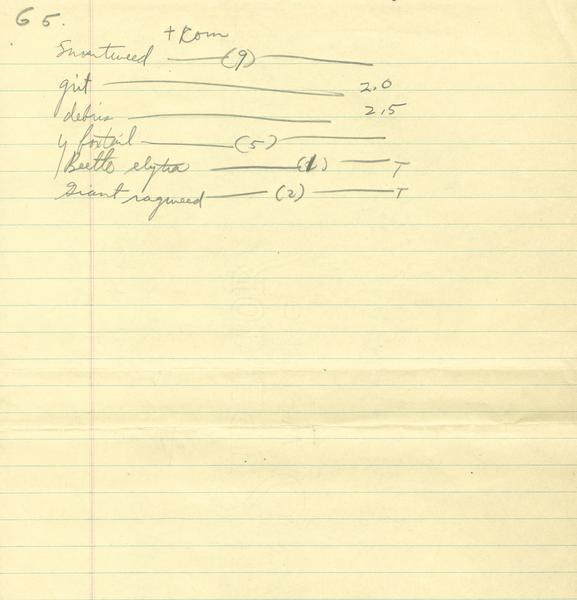 G 5.
Smartweed + Rom (9)
grit 2.0
debris 2.5
y foxtail (5)
Beetle elytra (1) T
Giant ragweed (2) T